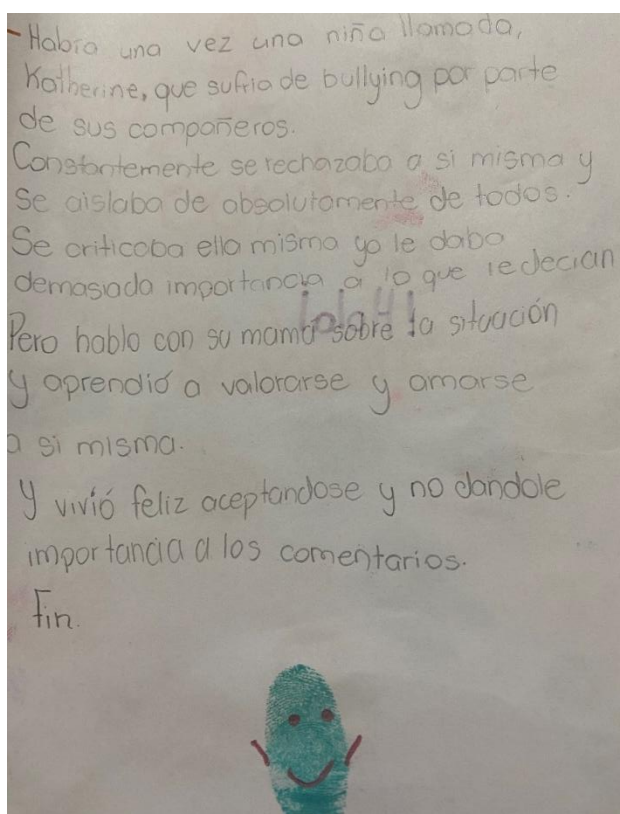 - Había una vez una niña llamada,
Katherine, que sufria de bullying por parte
de sus compañeros.
Constantemente se rechazaba a si misma y
se aislaba de absolutamente de todos.
Se criticaba ella misma ya le daba
demasiada importancia a lo que le decian
Pero hablo con su mamá sobre la situación
y aprendió a valorarse y amarse
a si misma.
Y vivió feliz aceptandose y no dandole
importancia a los comentarios.
Fin.